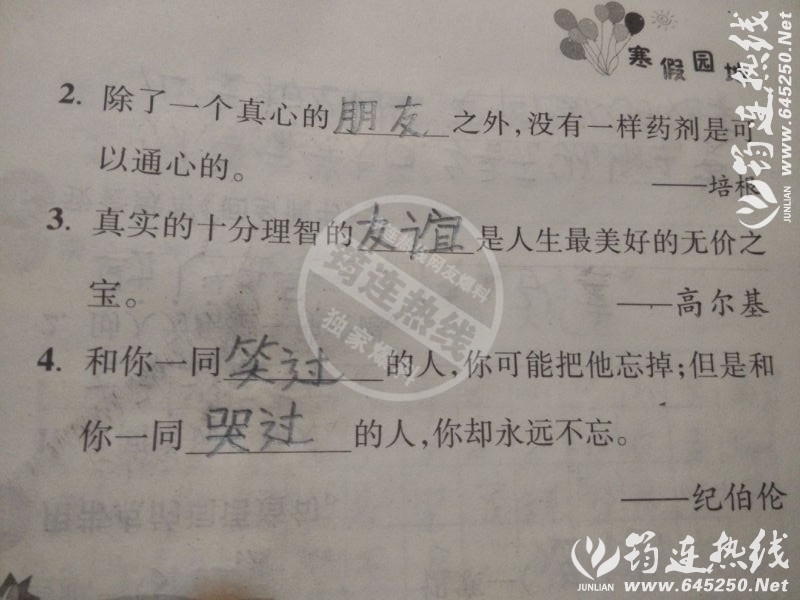 筠连热线
www.645250.Net
JUNLIAN
寒假园地
2. 除了一个真心的朋友之外,没有一样药剂是可
以通心的。
——培根
3. 真实的十分理智的友谊是人生最美好的无价之
宝。
——高尔基
4. 和你一同笑过的人,你可能把他忘掉;但是和
你一同哭过的人,你却永远不忘。
——纪伯伦
筠连热线
独家爆料
筠连热线
JUNLIAN www.645250.Net